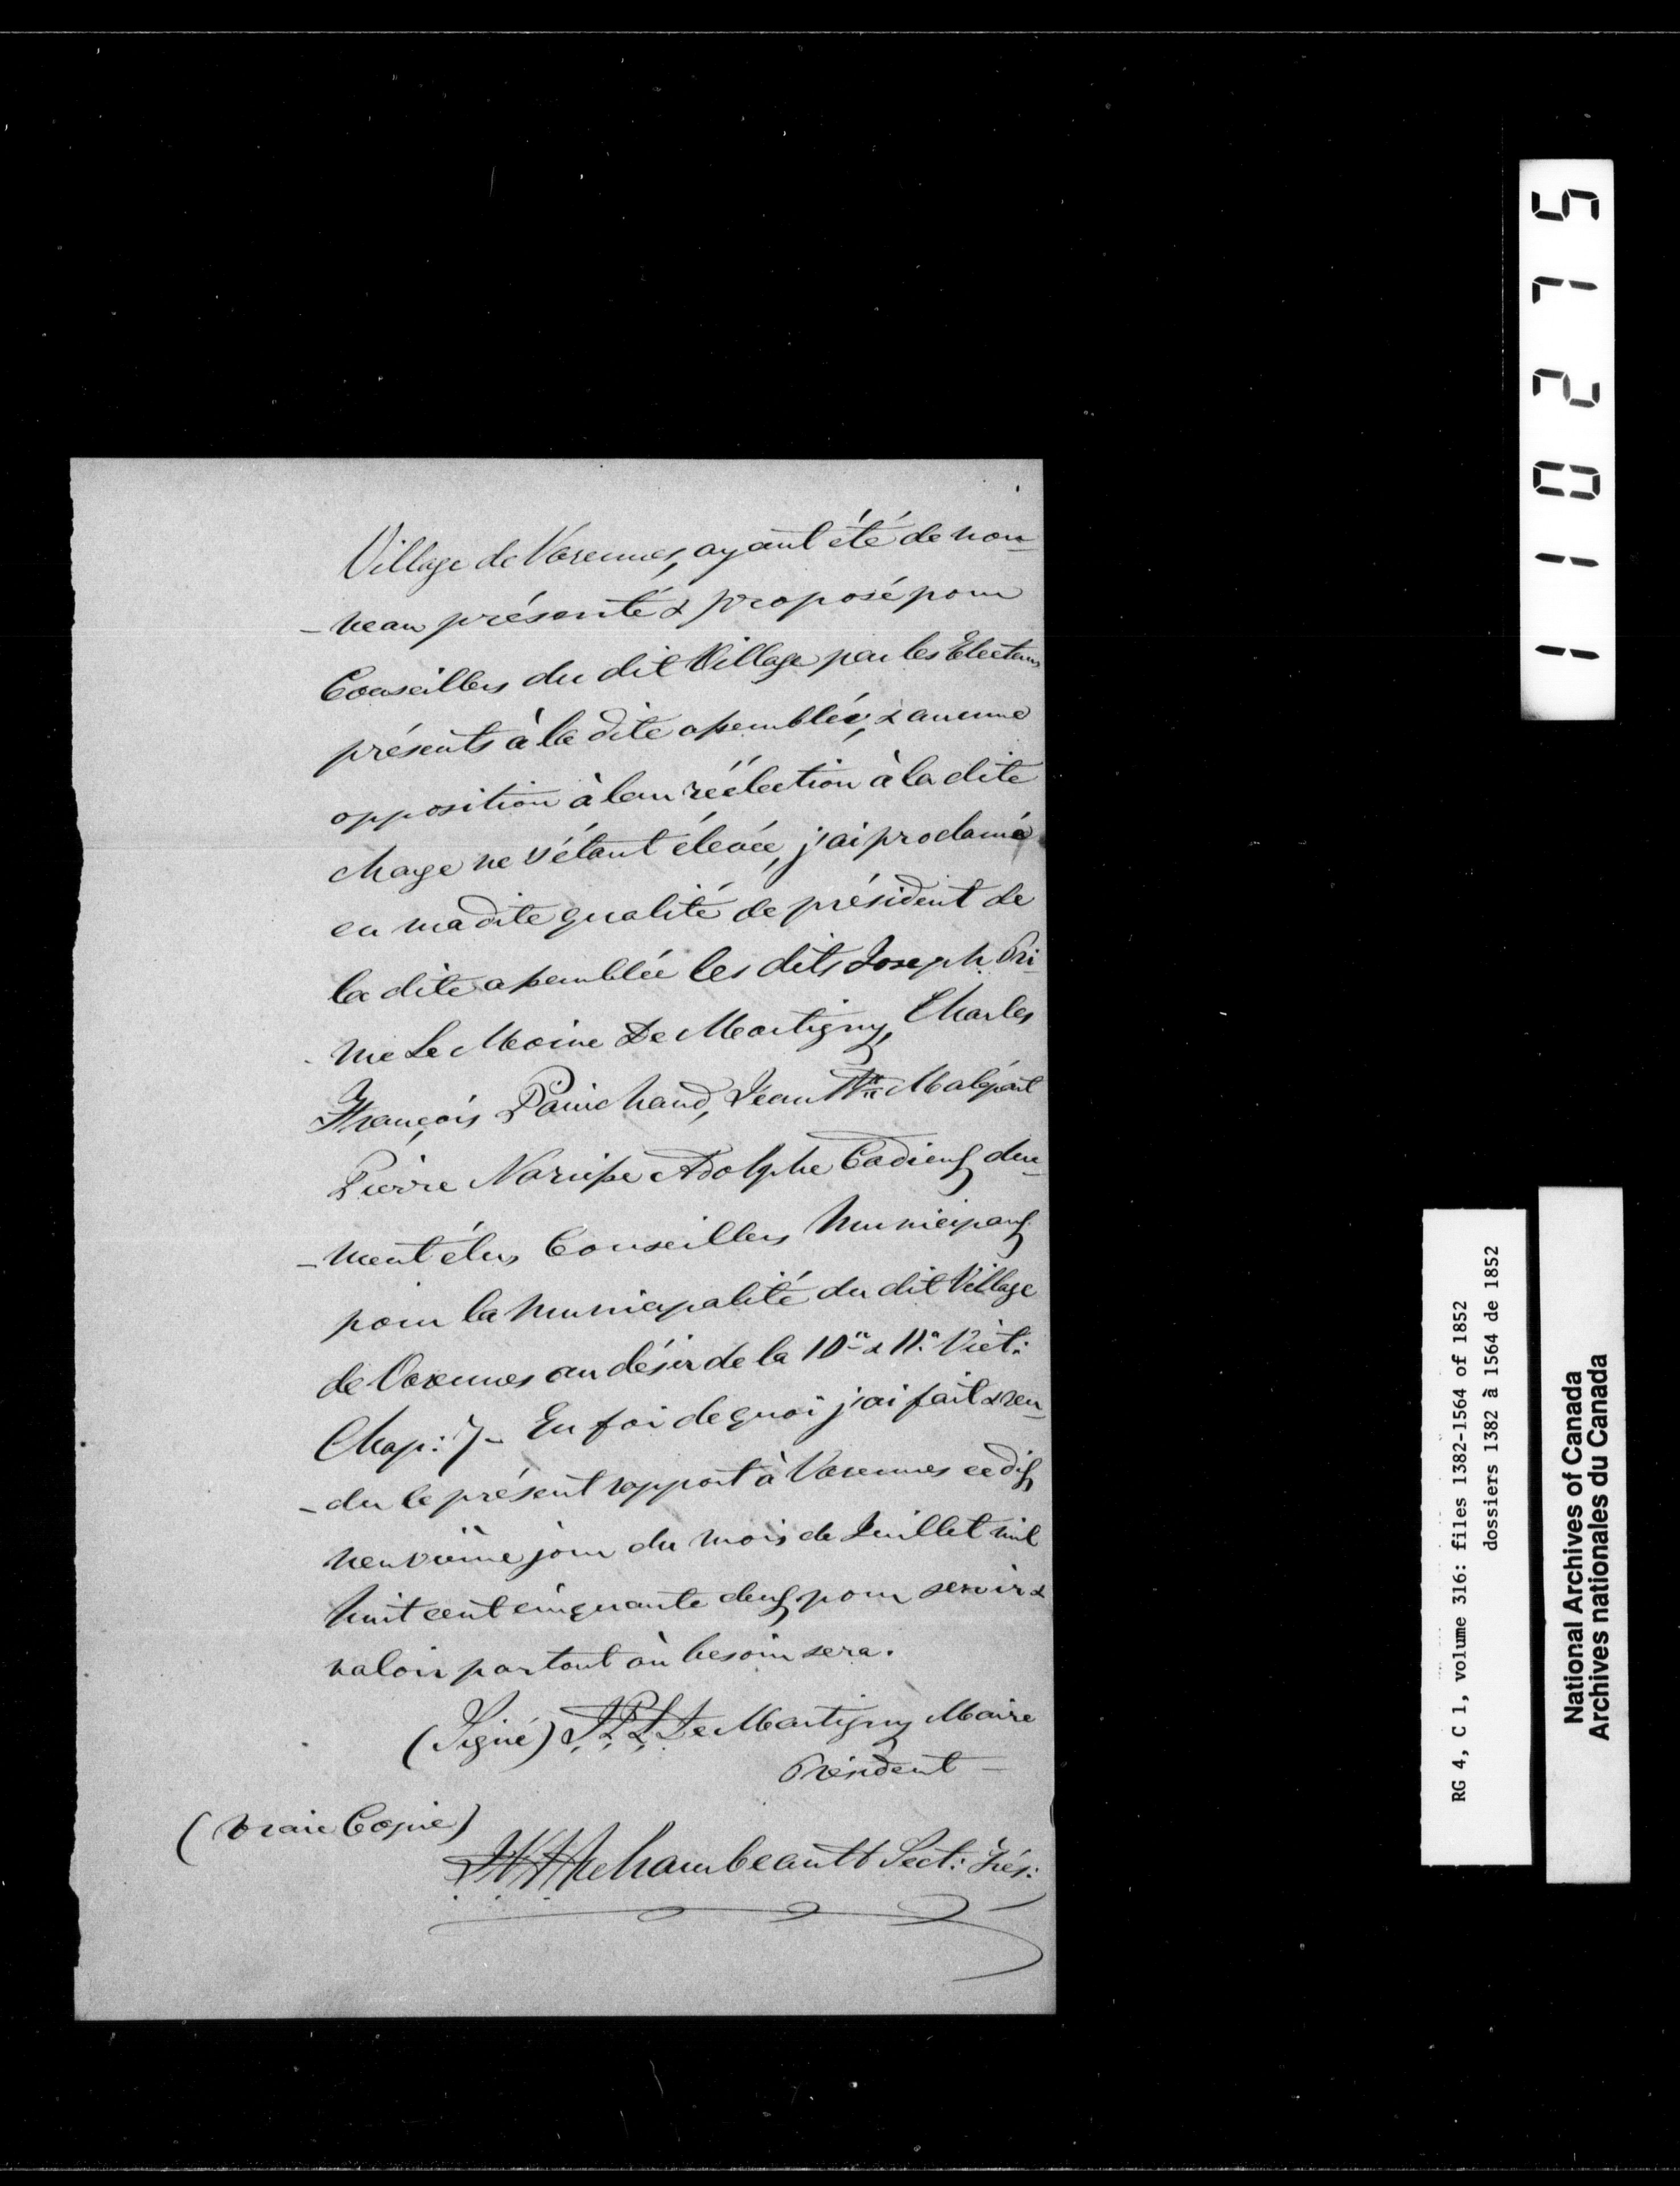 Village de Varennes, ayant été de nou-
-veau présenté & proposé pour
Conseillers du dit Village par les Electeurs
présents à la dite assemblée, & aucune
opposition à leur réélection à la dite
charge ne s'étant élevée, j'ai proclamé
en madite qualité de président de
la dite assemblée les dits Joseph Pri-
-me Le Moine De Martigny, Charles
François Painchaud, Jean Bte Malépart
Pierre Narcisse Adolphe Cadieux due-
-ment élus Conseillers Municipaux
pour la Municipalité du dit Village
de Varennes au désir de la 10e & 11e Vict:
Chap: 7 - En foi de quoi j'ai fait & ren-
-du le présent rapport à Varennes ce dix
neuvième jour du mois de Juillet mil
huit cent cinquante deux pour servir &
valoir partout où besoin sera.
(Signé) J. P. L. De Martigny Maire
Président -
(Vraie Copie)
Archambeault Sect: Trés:
110275
RG 4, C 1, volume 316: files 1382-1564 of 1852
dossiers 1382 à 1564 de 1852
National Archives of Canada
Archives nationales du Canada